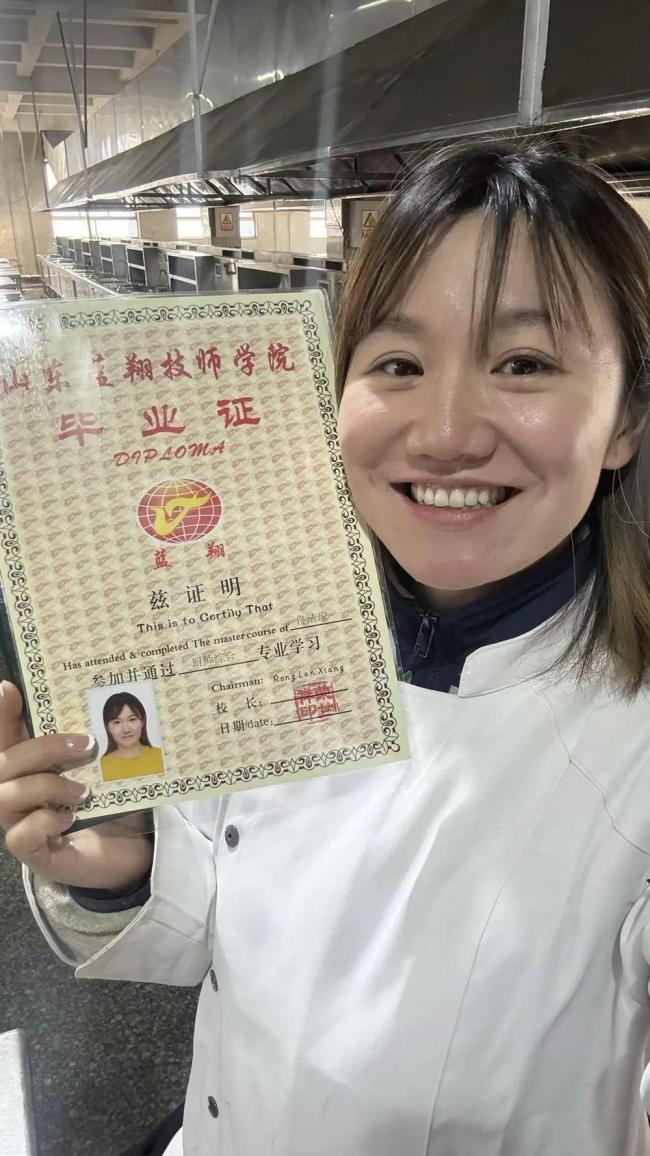 山东蓝翔技师学院
毕业证
DIPLOMA
蓝翔
兹证明
This is to Certily That
Has attended & completed The master course of
参加并通过 厨师综合 专业学习
Chairman: Rong Lan Xiang
校 长：
日期/date: